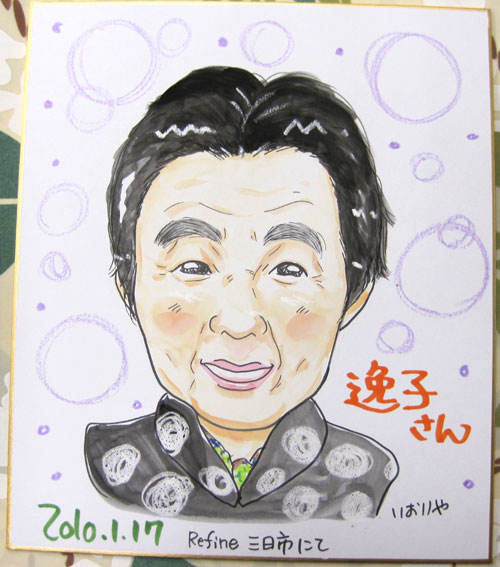 逸子
さん
いおりや
2010.1.17
Refine 三日市にて